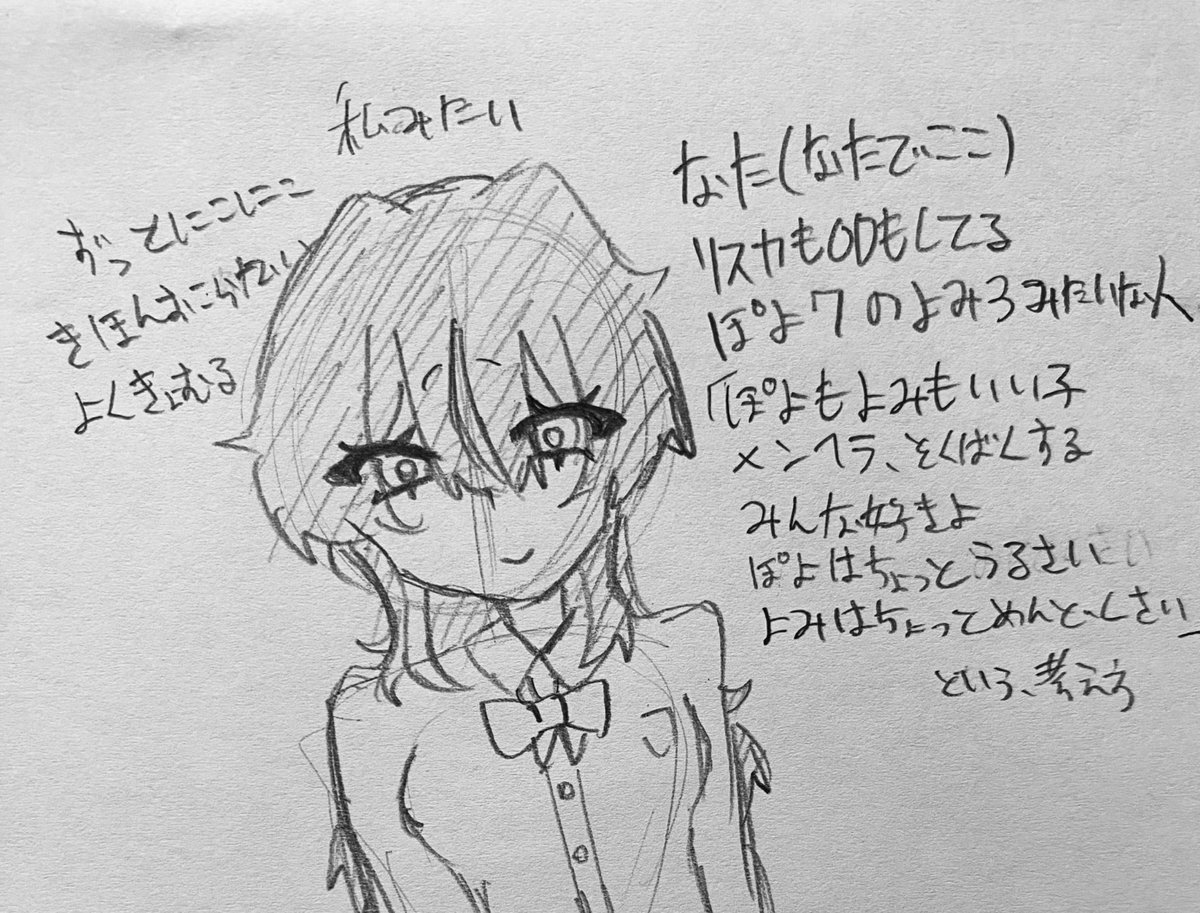 私みたい
ずっとにこにこ
きほんおこらない
よくきょむる
なた(なたでここ)
リスカもODもしてる
ぽよ7のよみ3みたいな人
「ぽよもよみもいい子
メンヘラ、そくばくする
みんな好きよ
ぽよはちょっとうるさい
よみはちょってめんどくさい
という、考え方